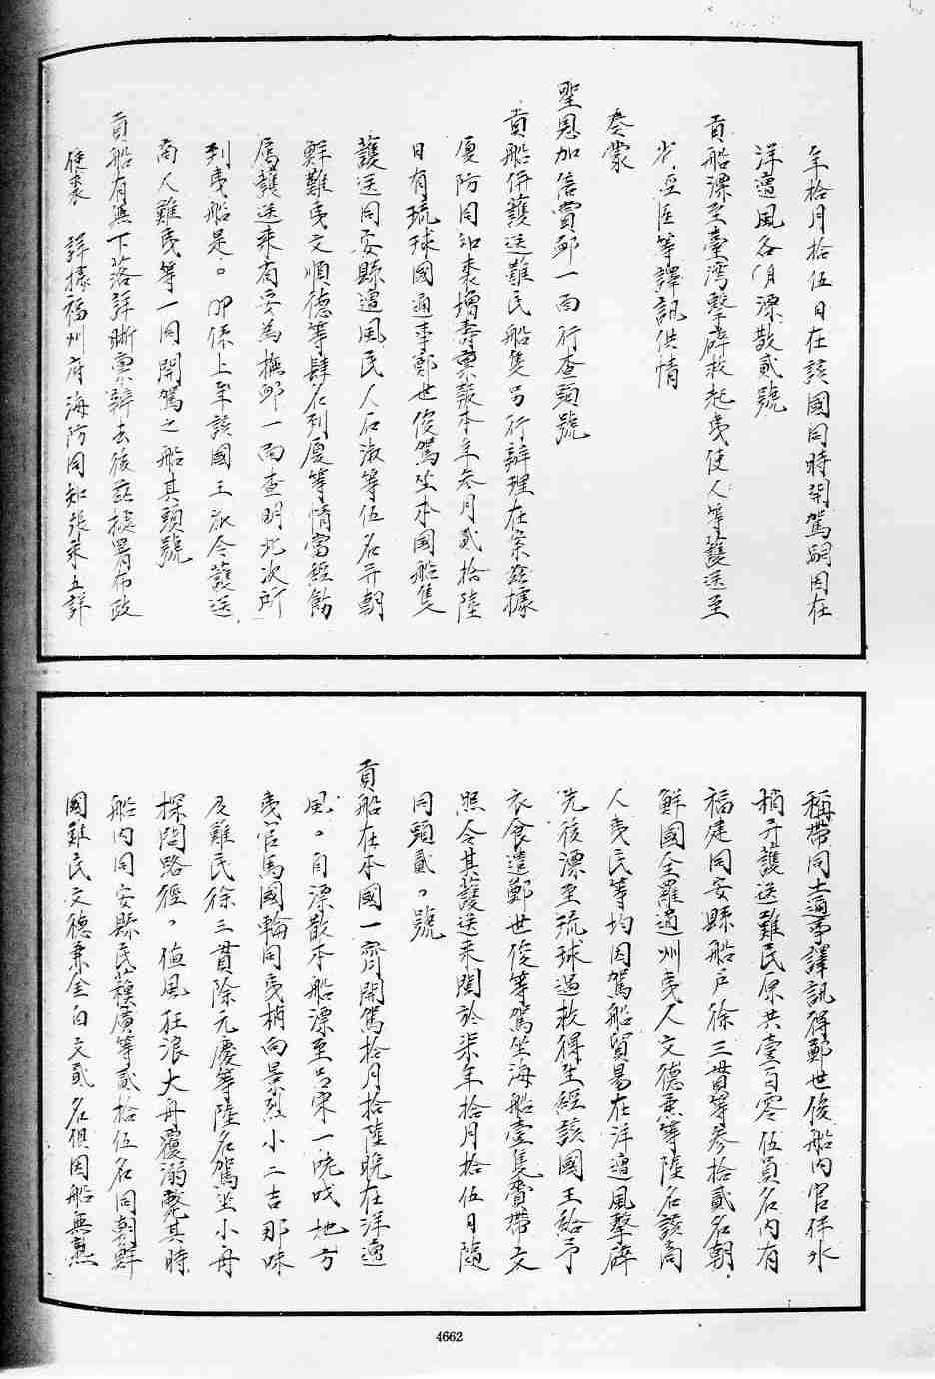 年拾月拾伍日在該國同時開駕嗣因在
洋遭風各自漂散貳號
貢船漂至臺灣擊碎救起夷使人等護送至
省逕匡等譯訊供情
奏蒙
聖恩加倍賞卹一面行查頭號
貢船併護送難民船隻另行辦理在案茲據
廈防同知裘增壽稟報本年叁月貳拾陸
日有琉球國通事鄭世俊駕坐本國船隻
護送同安縣遭風民人石淑等伍名并朝
鮮難夷文順德等肆名到廈等情當經飭
屬護送來省妥為撫卹一面查明此次所
到夷船是。卬係上年該國王派令護送
商人難夷等一同開駕之船其頭號
貢船有無下落詳晰稟辭去後茲據署布政
使裘 詳據福州府海防同知張采五詳
稱帶同土通事譯訊得鄭世俊船內官伴水
梢并護送難民保共壹百零伍員名內有
福建同安縣船戶徐三貫等叁拾貳名朝
鮮國全羅道州夷人文德兼等陸名該商
人夷民等均因駕船貿易在洋遭風擊碎
先後漂至琉球遇救得生經該國王給予
衣食遣鄭世俊等駕坐海船壹隻賫帶文
照令其護送來閩於柒年拾月拾伍日隨
同頭貳。號
貢船在本國一齊開駕拾月拾陸晚在洋遭
風。自漂散本船漂至呂宋一咾哎地方
夷官馬國輪同夷梢向景烈小二吉那味
及難民徐三貫除元慶等陸名駕坐小舟
探問路徑。值風狂浪大舟覆溺斃其時
船內同安縣民蘇廣等貳拾伍名同朝鮮
國難民文德兼金白文貳名俱因船無熟
4662